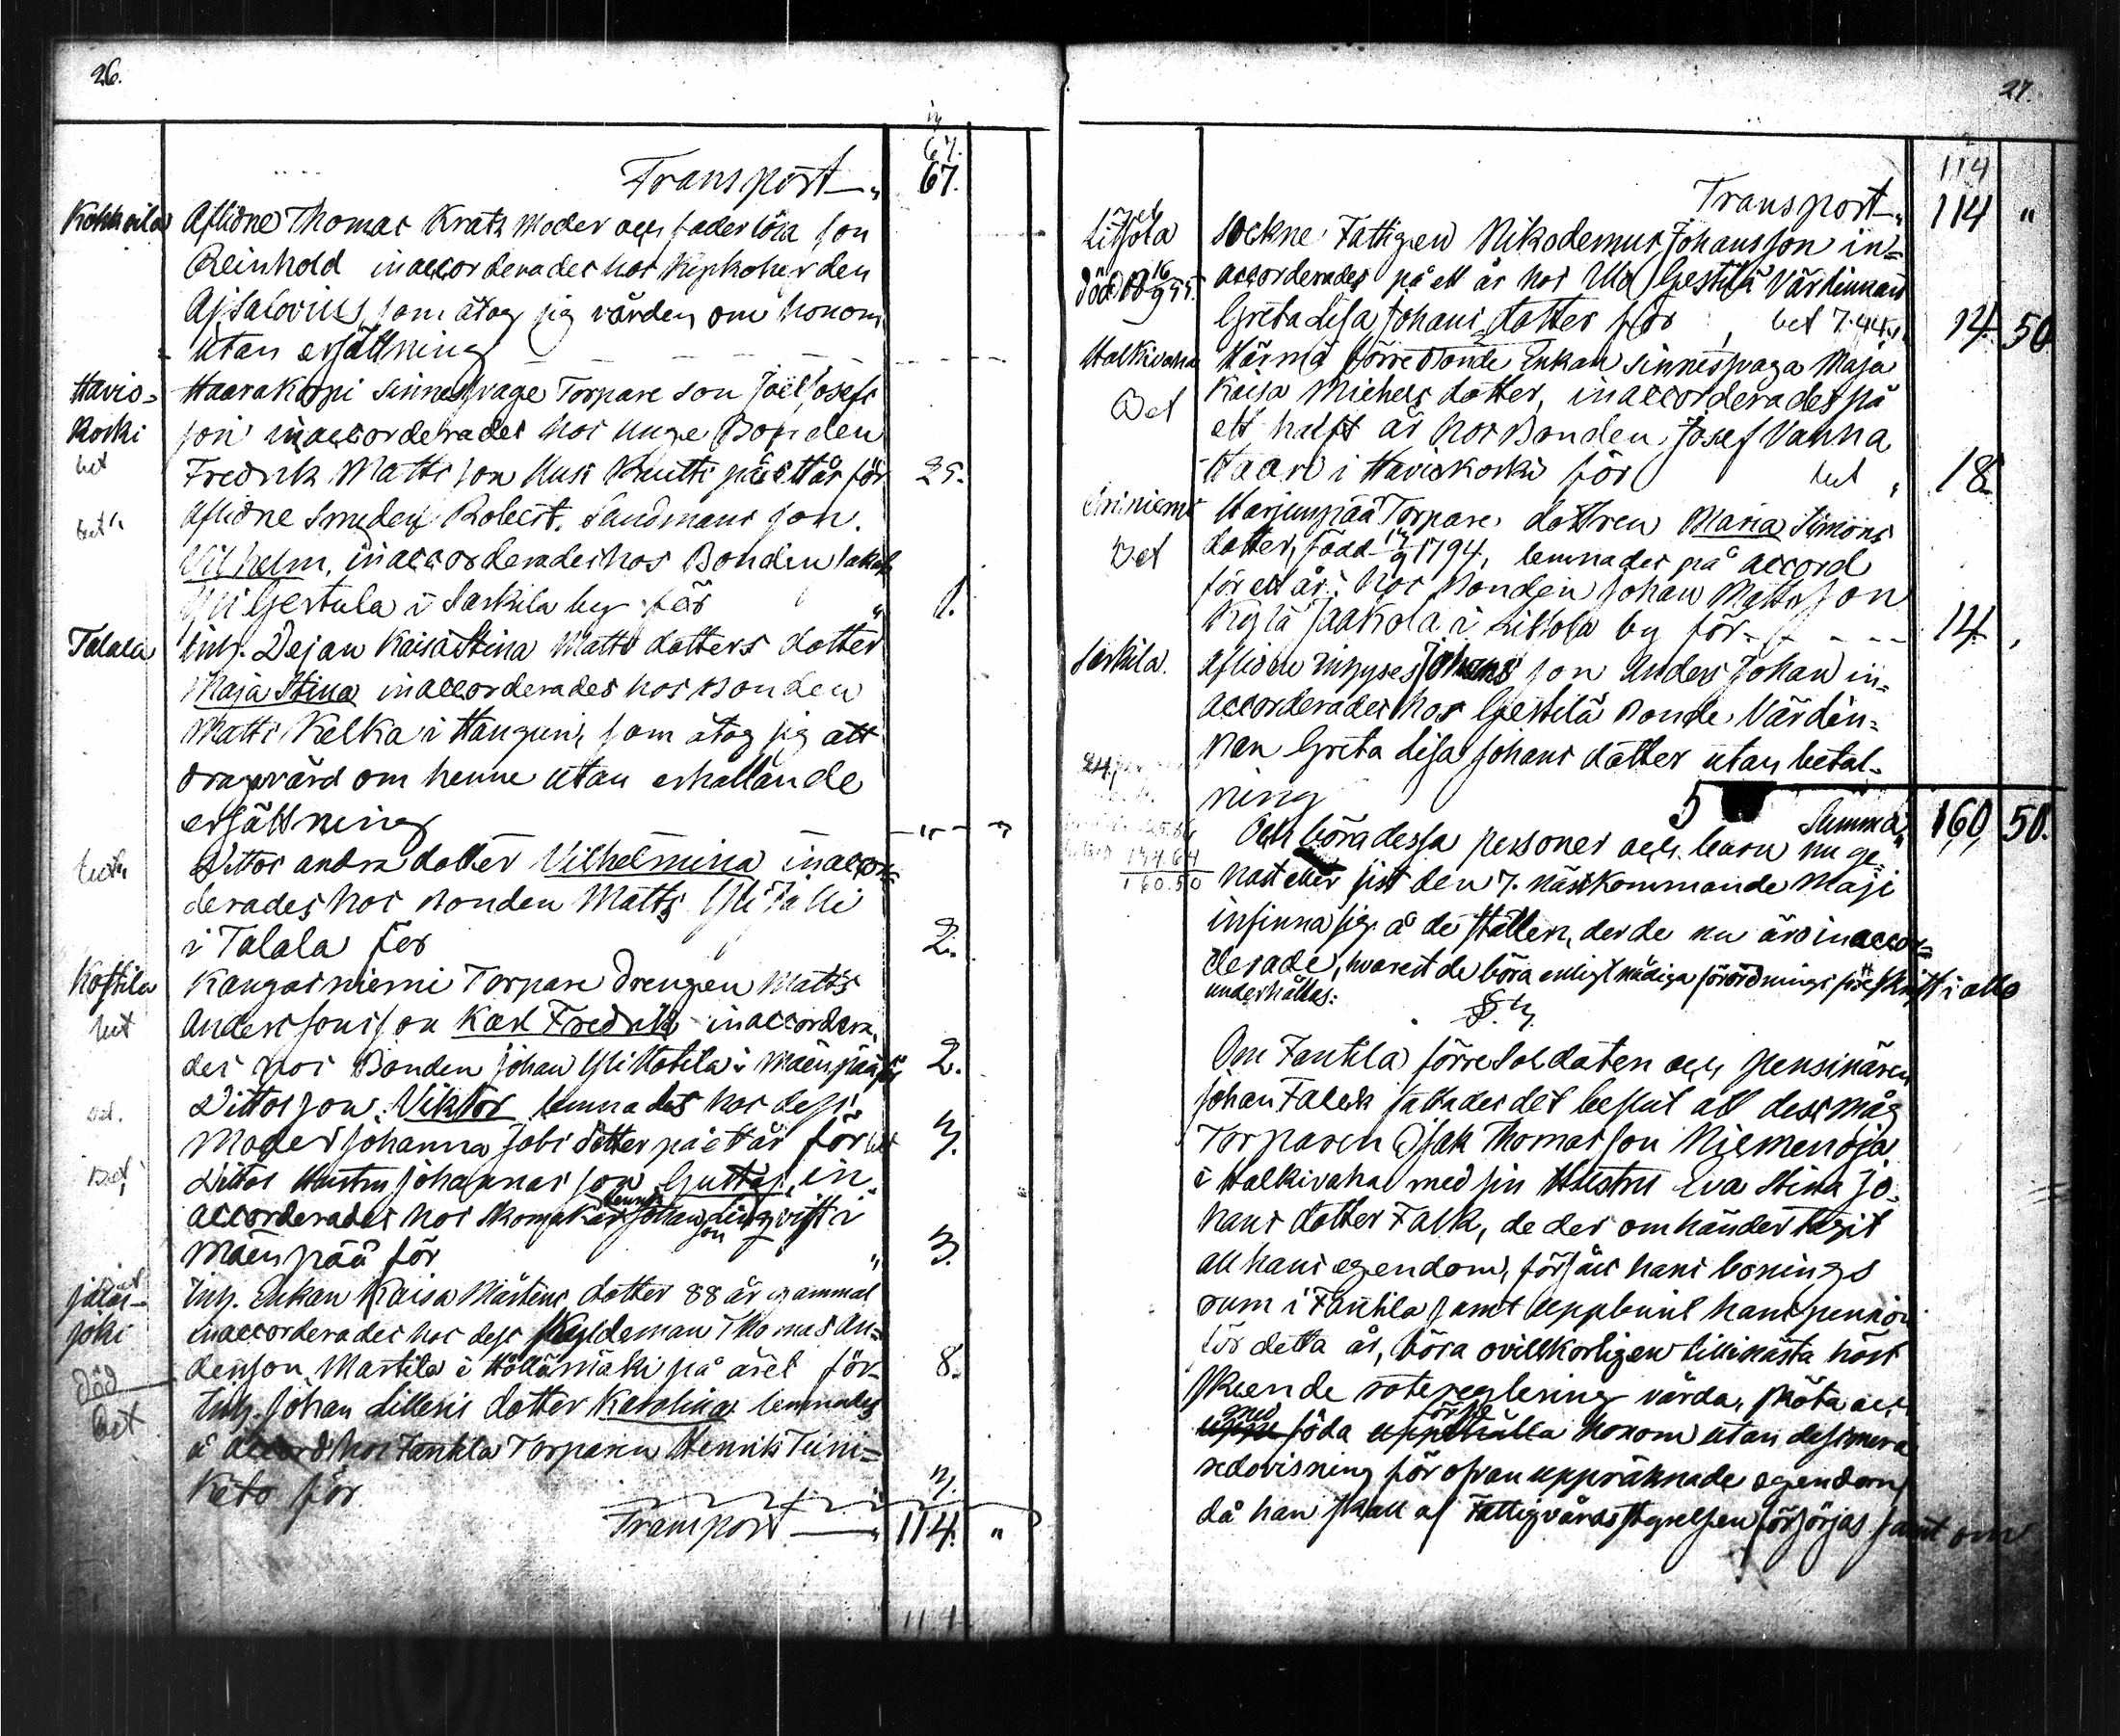 26.
67.
Transport 67.
Kokkoila Aflidne Thomas Kratz Moder och faderlösa son
Reinhold inaccorderades hos Kyrkoherden
Ajsalovius, som åtog sig vården om honom
utan ersättning
Haviskoski Haarakorpi sinnessvage Torpare son Joel Josefs
bet son inaccorderades hos unge Bonden
Fredrik Matts son Uusi Knutti på ett år för 25.
bet aflidne Smeden Robert Sandmans son
Vilhelm, inaccorderades hos Bonden Jakob
Yli Gertula i Sarkila by för 1.
Talala Inh. Dejan Kaisa Stina Matts dotters dotter
Maja Stina inaccorderades hos Bonden
Matts Kelka i Hanguni, som åtog sig att
draga vård om henne utan erhållande
ersättning
Dittos andra dotter Vilhelmina inaccor=
derades hos Bonden Matts Yli Jalli
i Talala för 2.
Kostila Kangasniemi Torpare Drengen Matts
bet Anderssons son Karl Fredrik inaccordera=
des hos Bonden Johan Yli Kotila i Mäenpää för 2.
Dittos son Viktor lemnades hos dess
Moder Johanna Jobs dotter på ett år för bet 3.
Bet Dittos Hustru Johannas son Gustaf, in=
accorderades hos Skomakar Johan Lingvist i
Mäenpää för 3.
Jalas=
joki Inh. Enkan Kaisa Mårtens dotter 88 år gammal
inaccorderades hos dess Skyldeman Thomas An=
död dersson Martila i Höllämäki på året för 8.
bet Inh. Johan Lillens dotter Karolina lemnades
å accord hos Fantila Torparen Henrik Teini=
keto för 3.
Transport 114. "
27.
114
Transport 114 "
Litsola Sockne Fattigen Nikodemus Johansson in=
död 16/9 55. accorderades på ett år hos Uld Gestilä Värdinnan
Greta Lisa Johans dotter för bet 7.44. 14. 50
Halkivaha Härmä förre Bonde Enkan sinnessvaga Maja
Bet Kaisa Michels dotter, inaccorderades på
ett halft år hos Bonden Josef Vanha
Haari i Haviskoski för bet 18.
Oriniemi Harjunpää Torpare dottren Maria Simons
Bet dotter, född 1794, lemnades på accord
för ett år hos Bonden Johan Matts son
Kylä Jaakola i Litsola by för 14.
Sarkila. aflidne Inhyses Johans son Anders Johan in=
accorderades hos Gestilä Bonde Värdin=
nan Greta Lisa Johans dotter utan betal=
ning
Summa 160, 50.
144.64
160.50
Och böra dessa personer och barn nu ge=
nast eller sist den 7. nästkommande Maji
infinna sig å de ställen, der de nu äro inaccor=
derade, hvarest de böra enligt nådiga förordnings föreskrift i allo
underhållas:
§. 3.
Om Fantila förre Soldaten och pensinären
Johan Falck fattades det beslut att dess måg
Torparen Isak Thomas son Niemenoja
i Halkivaha med sin Hustru Eva Stina Jo=
hans dotter Falk, de der omhändertagit
all hans egendom, försålt hans bonings
rum i Fantila samt uppburit hans pension
för detta år, böra ovillkorligen till nästa höst
skeende rotereglering vårda, sköta och
föda honom utan dess mera
redovisning för ofvan uppräknade egendom,
då han skall af Fattigvårdsstyrelsen försörjas samt om